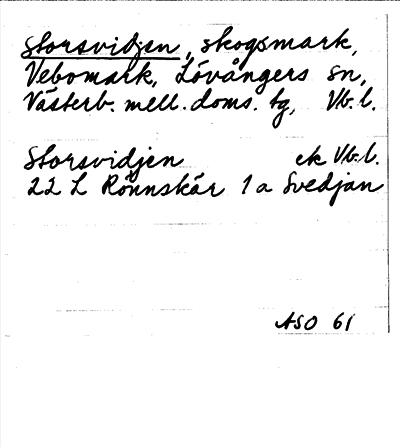 Storsvidjen, skogsmark,
Vebomark, Lövångers sn,
Västerb. mell. doms. tg, Vb. l.
Storsvidjen ek Vb. l.
22 L Rönnskär 1a Svedjan
ASO 61